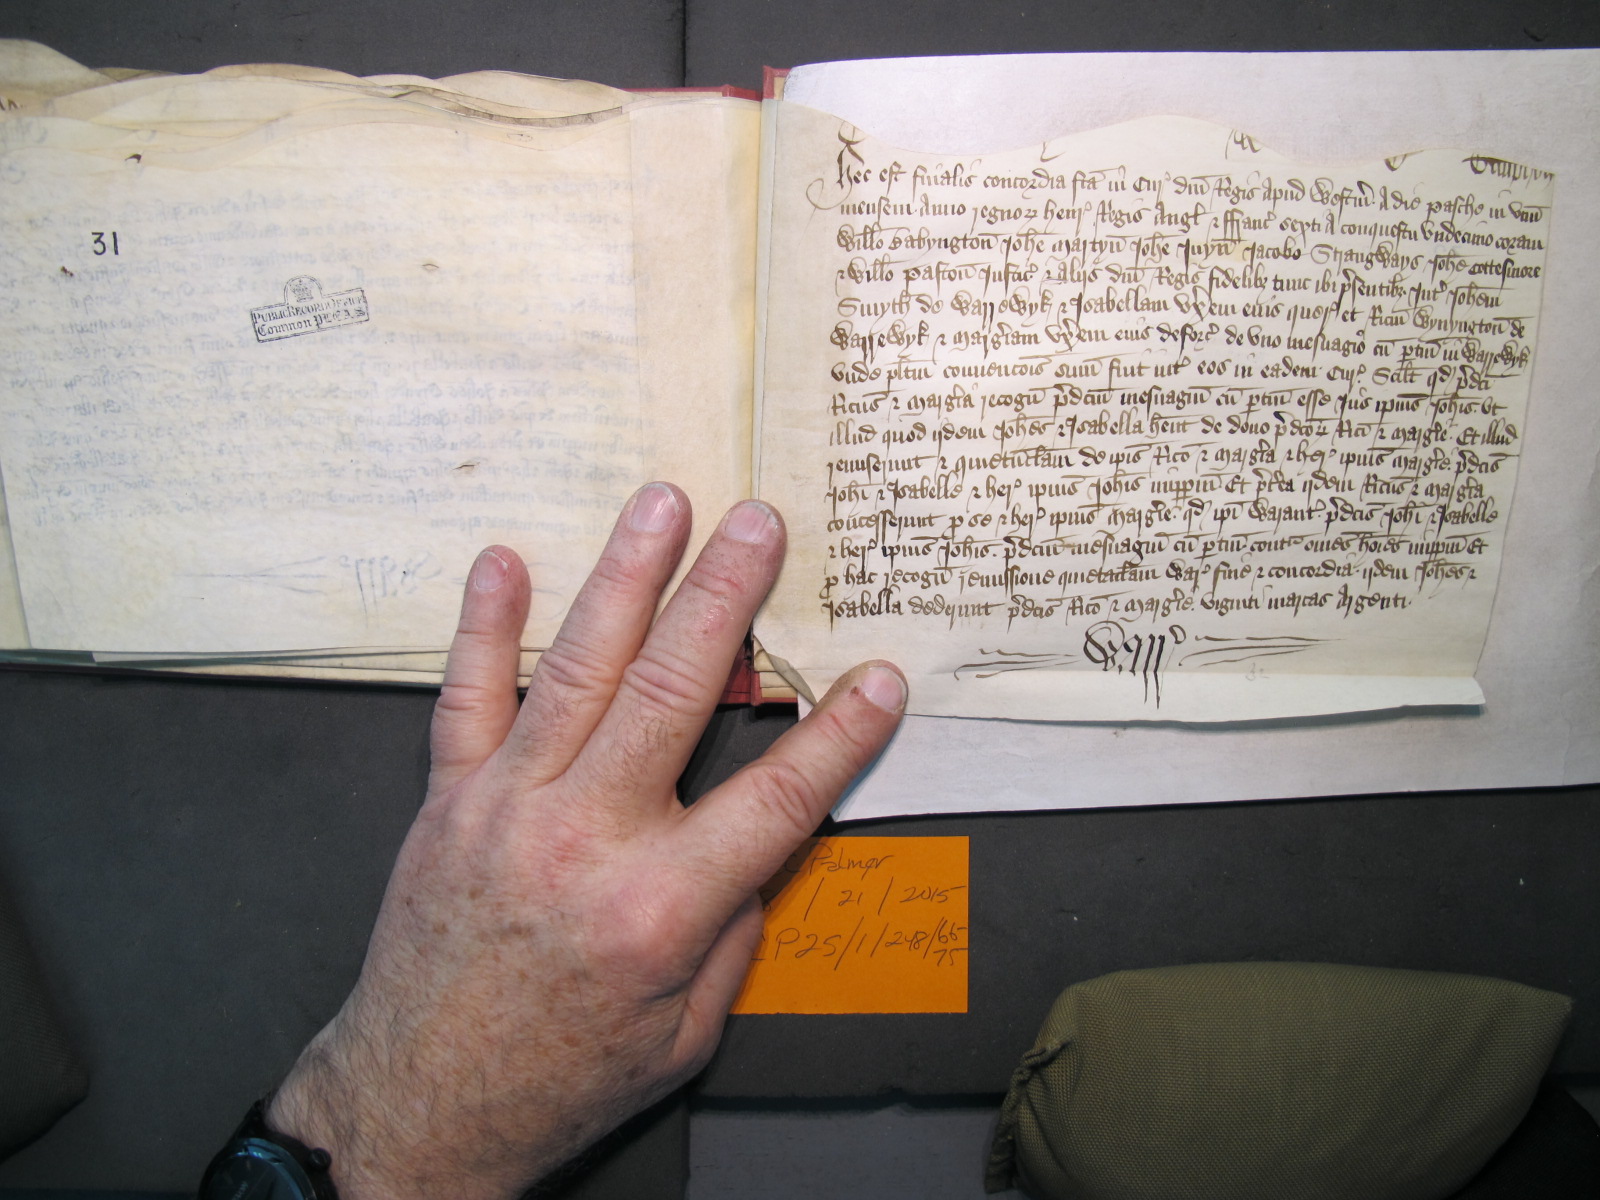 31
PUBLIC RECORD OFFICE
Common PLEAS
Hec est finalis concordia fc̄a in Cur' dn̄i Regis apud Westm̄ A die pasche in vnū
mensem Anno regnoꝝ henr' Regis Angl' ⁊ ffranc' septi A conquestu vndecimo coram
Will̄o Babyngton̄ Joh̄e Martyn̄ Joh̄e Juyn̄ Jacobo Strangways Joh̄e Cottesmore
⁊ Will̄o paston̄ Justic' ⁊ alijs dn̄i Regis fidelibꝫ tunc ibi p̄sentibꝫ Int' Joh̄em
Smyth de Warrewyk ⁊ Isabellam vx̄em eius quer' et Ric̄m Wynyngton̄ de
Warrewyk ⁊ Margr̄iam vx̄em eius deforc' de vno mesuagio cū ptin̄ in Warrewyk
vnde pl̄itm conuenc̄ois sum̄ fuit int' eos in eadem Cur' Scil̄t qd' p̄dc̄i
Ric̄us ⁊ Margr̄ia recogn̄ p̄dc̄um mesuagiū cū ptin̄ esse Jus ipius Joh̄is vt
illud quod ijdem Joh̄es ⁊ Isabella hent de dono p̄dc̄oꝝ Ric̄i ⁊ Margr̄ie Et illud
remiserunt ⁊ quietūclam̄ de ip̄is Ric̄o ⁊ Margr̄ia ⁊ her' ipius Margr̄ie p̄dc̄is
Joh̄i ⁊ Isabelle ⁊ her' ipius Joh̄is imppm̄ Et p̄t̄ea ijdem Ric̄us ⁊ Margr̄ia
concesserunt p se ⁊ her' ipius Margr̄ie qd' ip̄i Warant' p̄dc̄is Joh̄i ⁊ Isabelle
⁊ her' ipius Joh̄is p̄dc̄um mesuagiū cū ptin̄ cont' om̄es hoīes imppm̄ Et
p hac recogn̄ remissione quietaclam̄ War' fine ⁊ concordia ijdem Joh̄es ⁊
Isabella dederunt p̄dc̄is Ric̄o ⁊ Margr̄ie viginti marcas Argenti
Warr'
Palmer
/ 21 / 2015
P 25/1/248/66
75